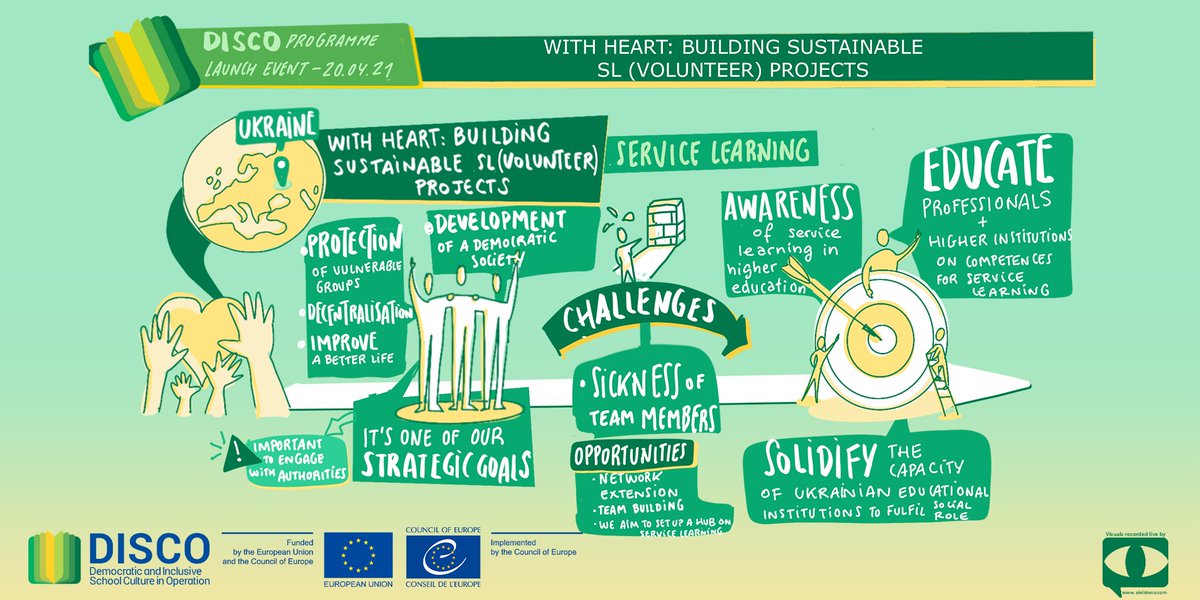 DISCO PROGRAMME
LAUNCH EVENT - 20.04.21
WITH HEART: BUILDING SUSTAINABLE
SL (VOLUNTEER) PROJECTS
UKRAINE
WITH HEART: BUILDING
SUSTAINABLE SL (VOLUNTEER)
PROJECTS
SERVICE LEARNING
• PROTECTION
OF VULNERABLE
GROUPS
• DECENTRALISATION
• IMPROVE
A BETTER LIFE
• DEVELOPMENT
OF A DEMOCRATIC
SOCIETY
! IMPORTANT
TO ENGAGE
WITH AUTHORITIES
IT'S ONE OF OUR
STRATEGIC GOALS
CHALLENGES
• SICKNESS OF
TEAM MEMBERS
OPPORTUNITIES
• NETWORK
EXTENSION
• TEAM BUILDING
• WE AIM TO SET UP A HUB ON
SERVICE LEARNING
AWARENESS
of service
learning in
higher
education
EDUCATE
PROFESSIONALS
+
HIGHER INSTITUTIONS
ON COMPETENCES
FOR SERVICE
LEARNING
SOLIDIFY THE
CAPACITY
OF UKRAINIAN EDUCATIONAL
INSTITUTIONS TO FULFIL SOCIAL
ROLE
DISCO
Democratic and Inclusive
School Culture in Operation
Funded
by the European Union
and the Council of Europe
EUROPEAN UNION
COUNCIL OF EUROPE
CONSEIL DE L'EUROPE
Implemented
by the Council of Europe
Visuals recorded live by
www.alelistens.com